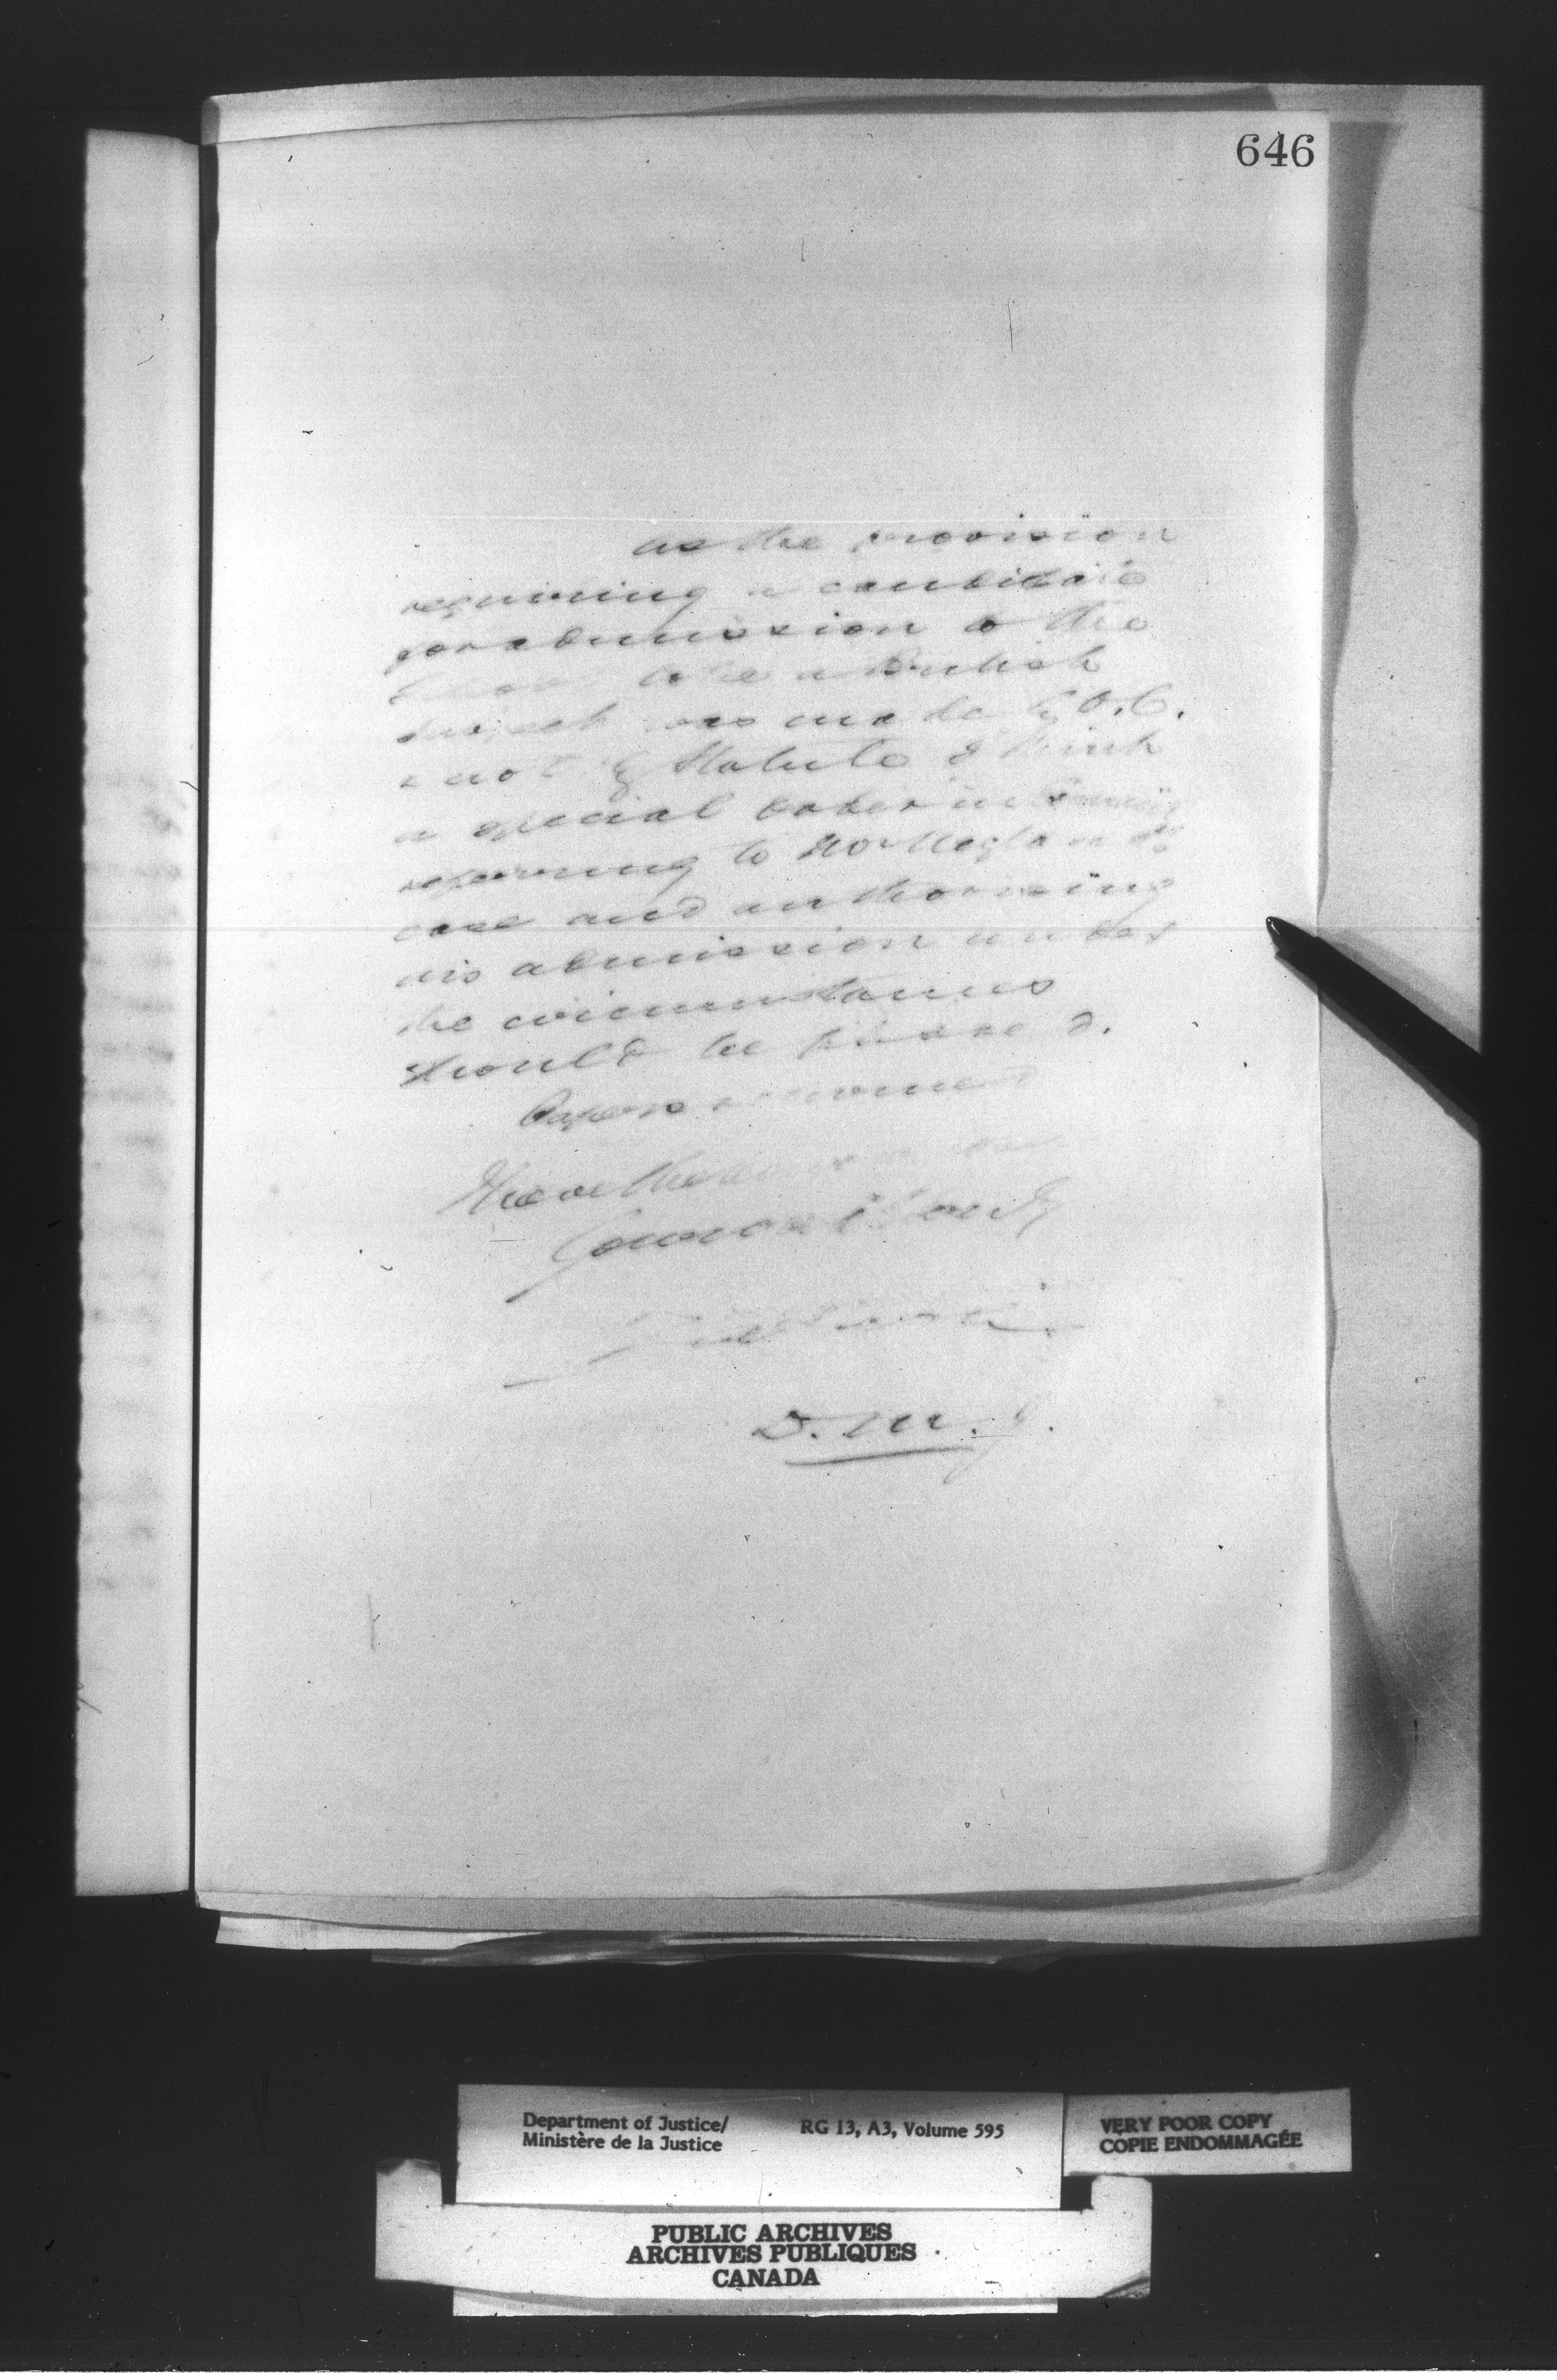 646
as the provision
requiring a candidate
for admission to the
to be a British
subject was made by O.C.
& not by Statute I think
a special order in Council
referring to
case and authorizing
his admission under
the circumstances
should be passed.
Papers returned
I have the
D. M. J.
Department of Justice/
Ministère de la Justice
RG 13, A3, Volume 595
VERY POOR COPY
COPIE ENDOMMAGÉE
PUBLIC ARCHIVES
ARCHIVES PUBLIQUES
CANADA